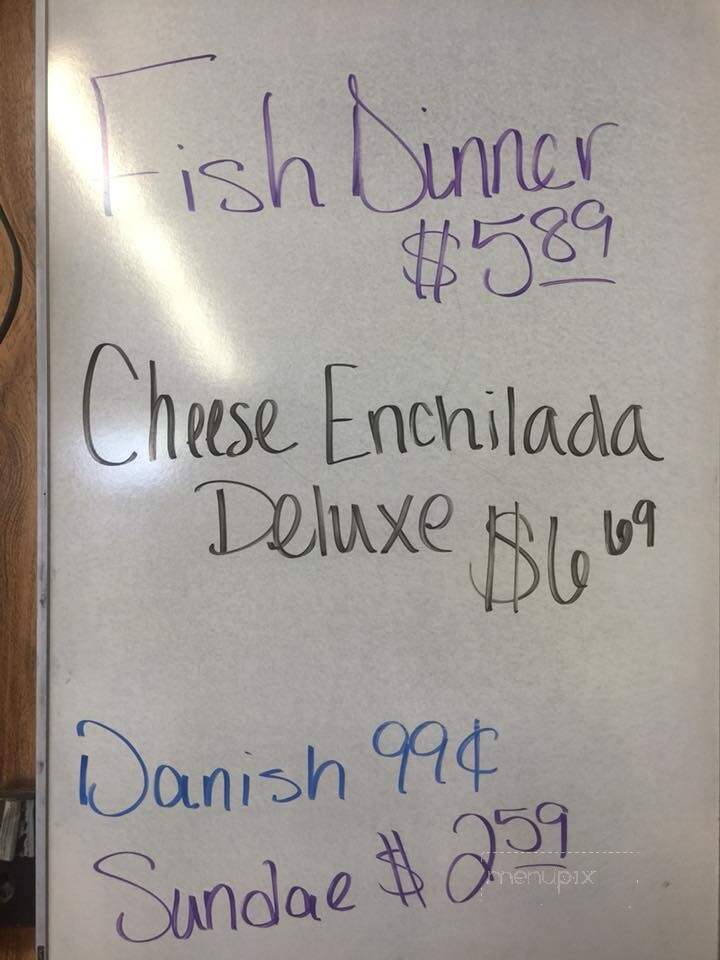 Fish Dinner
$5 89
Cheese Enchilada
Deluxe $6 69
Danish 99¢
Sundae $2 59
menupix